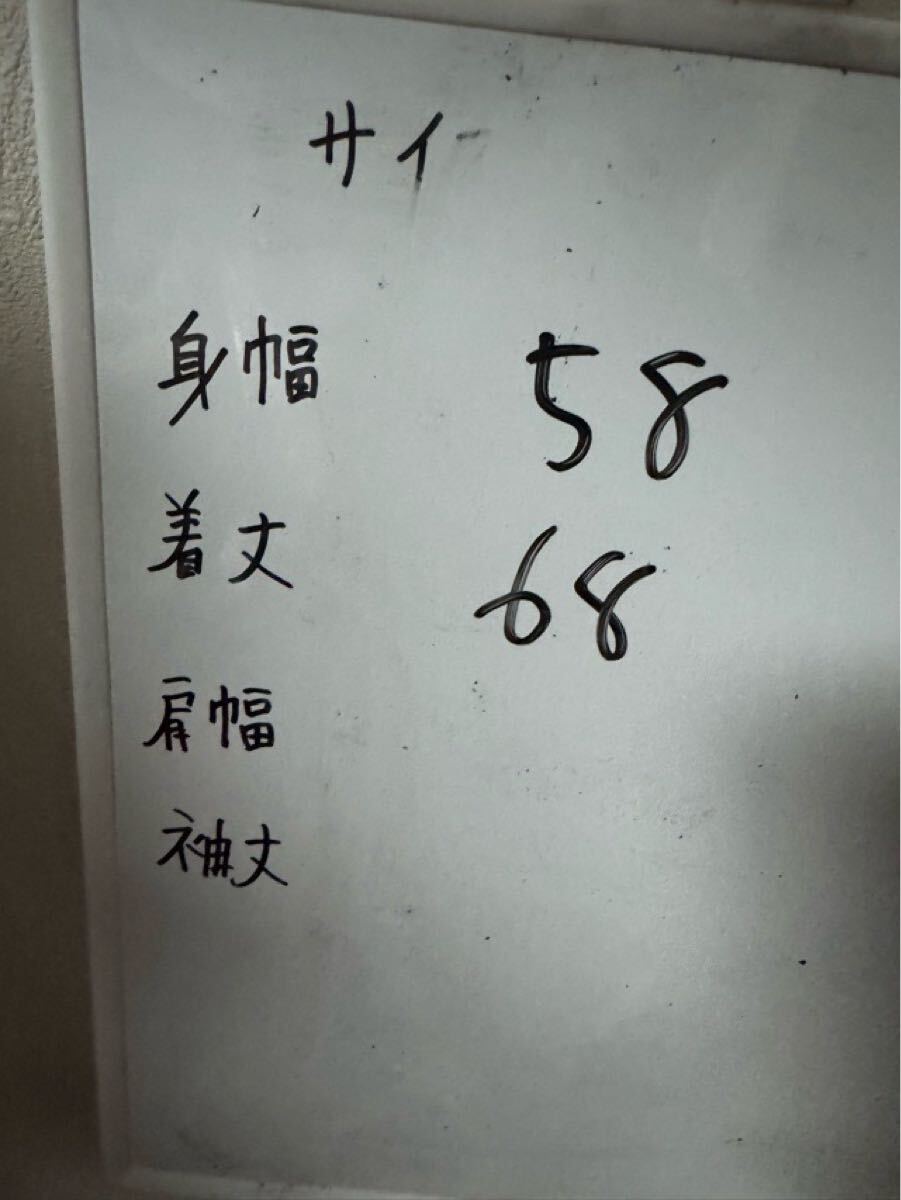 サイ
身幅 58
着丈 68
肩幅
袖丈